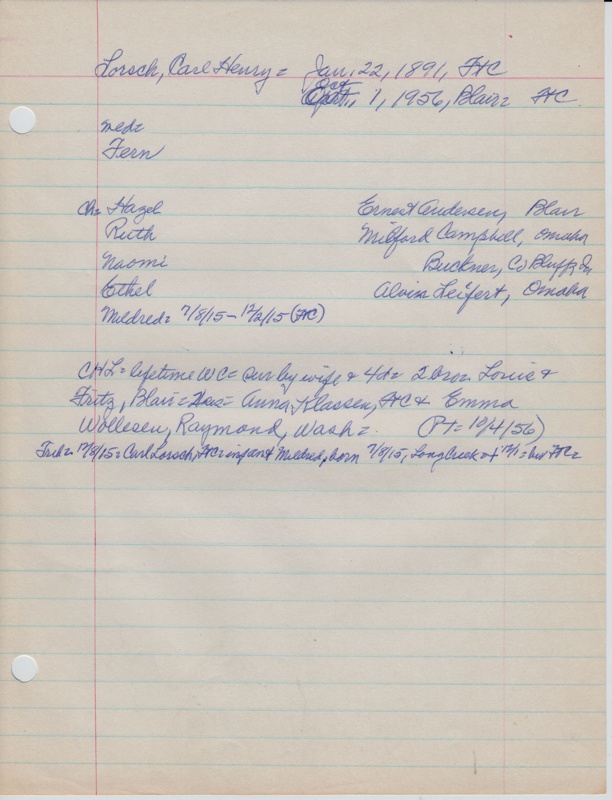 Lorsch, Carl Henry = Jan. 22, 1891, FtC
Oct. 1, 1956, Blair = FtC
med=
Fern
Ch= Hazel Ernest Andersen, Blair
Ruth Milford Campbell, Omaha
Naomi Buckner, Co Bluffs, Ia
Ethel Alvin Seifert, Omaha
Mildred = 7/8/15 - 12/2/15 (FtC)
CHL = lifetime WC = sur by wife & 4d = 2 bros. Louie &
Fritz, Blair = 2 sis = Anna Klassen, FtC & Emma
Wollesen, Raymond, Wash = (PT = 10/4/56)
12/8/15 = Carl Lorsch, FtC = infant Mildred, born 7/8/15, Long Creek & + 12/1 = bur FtC =